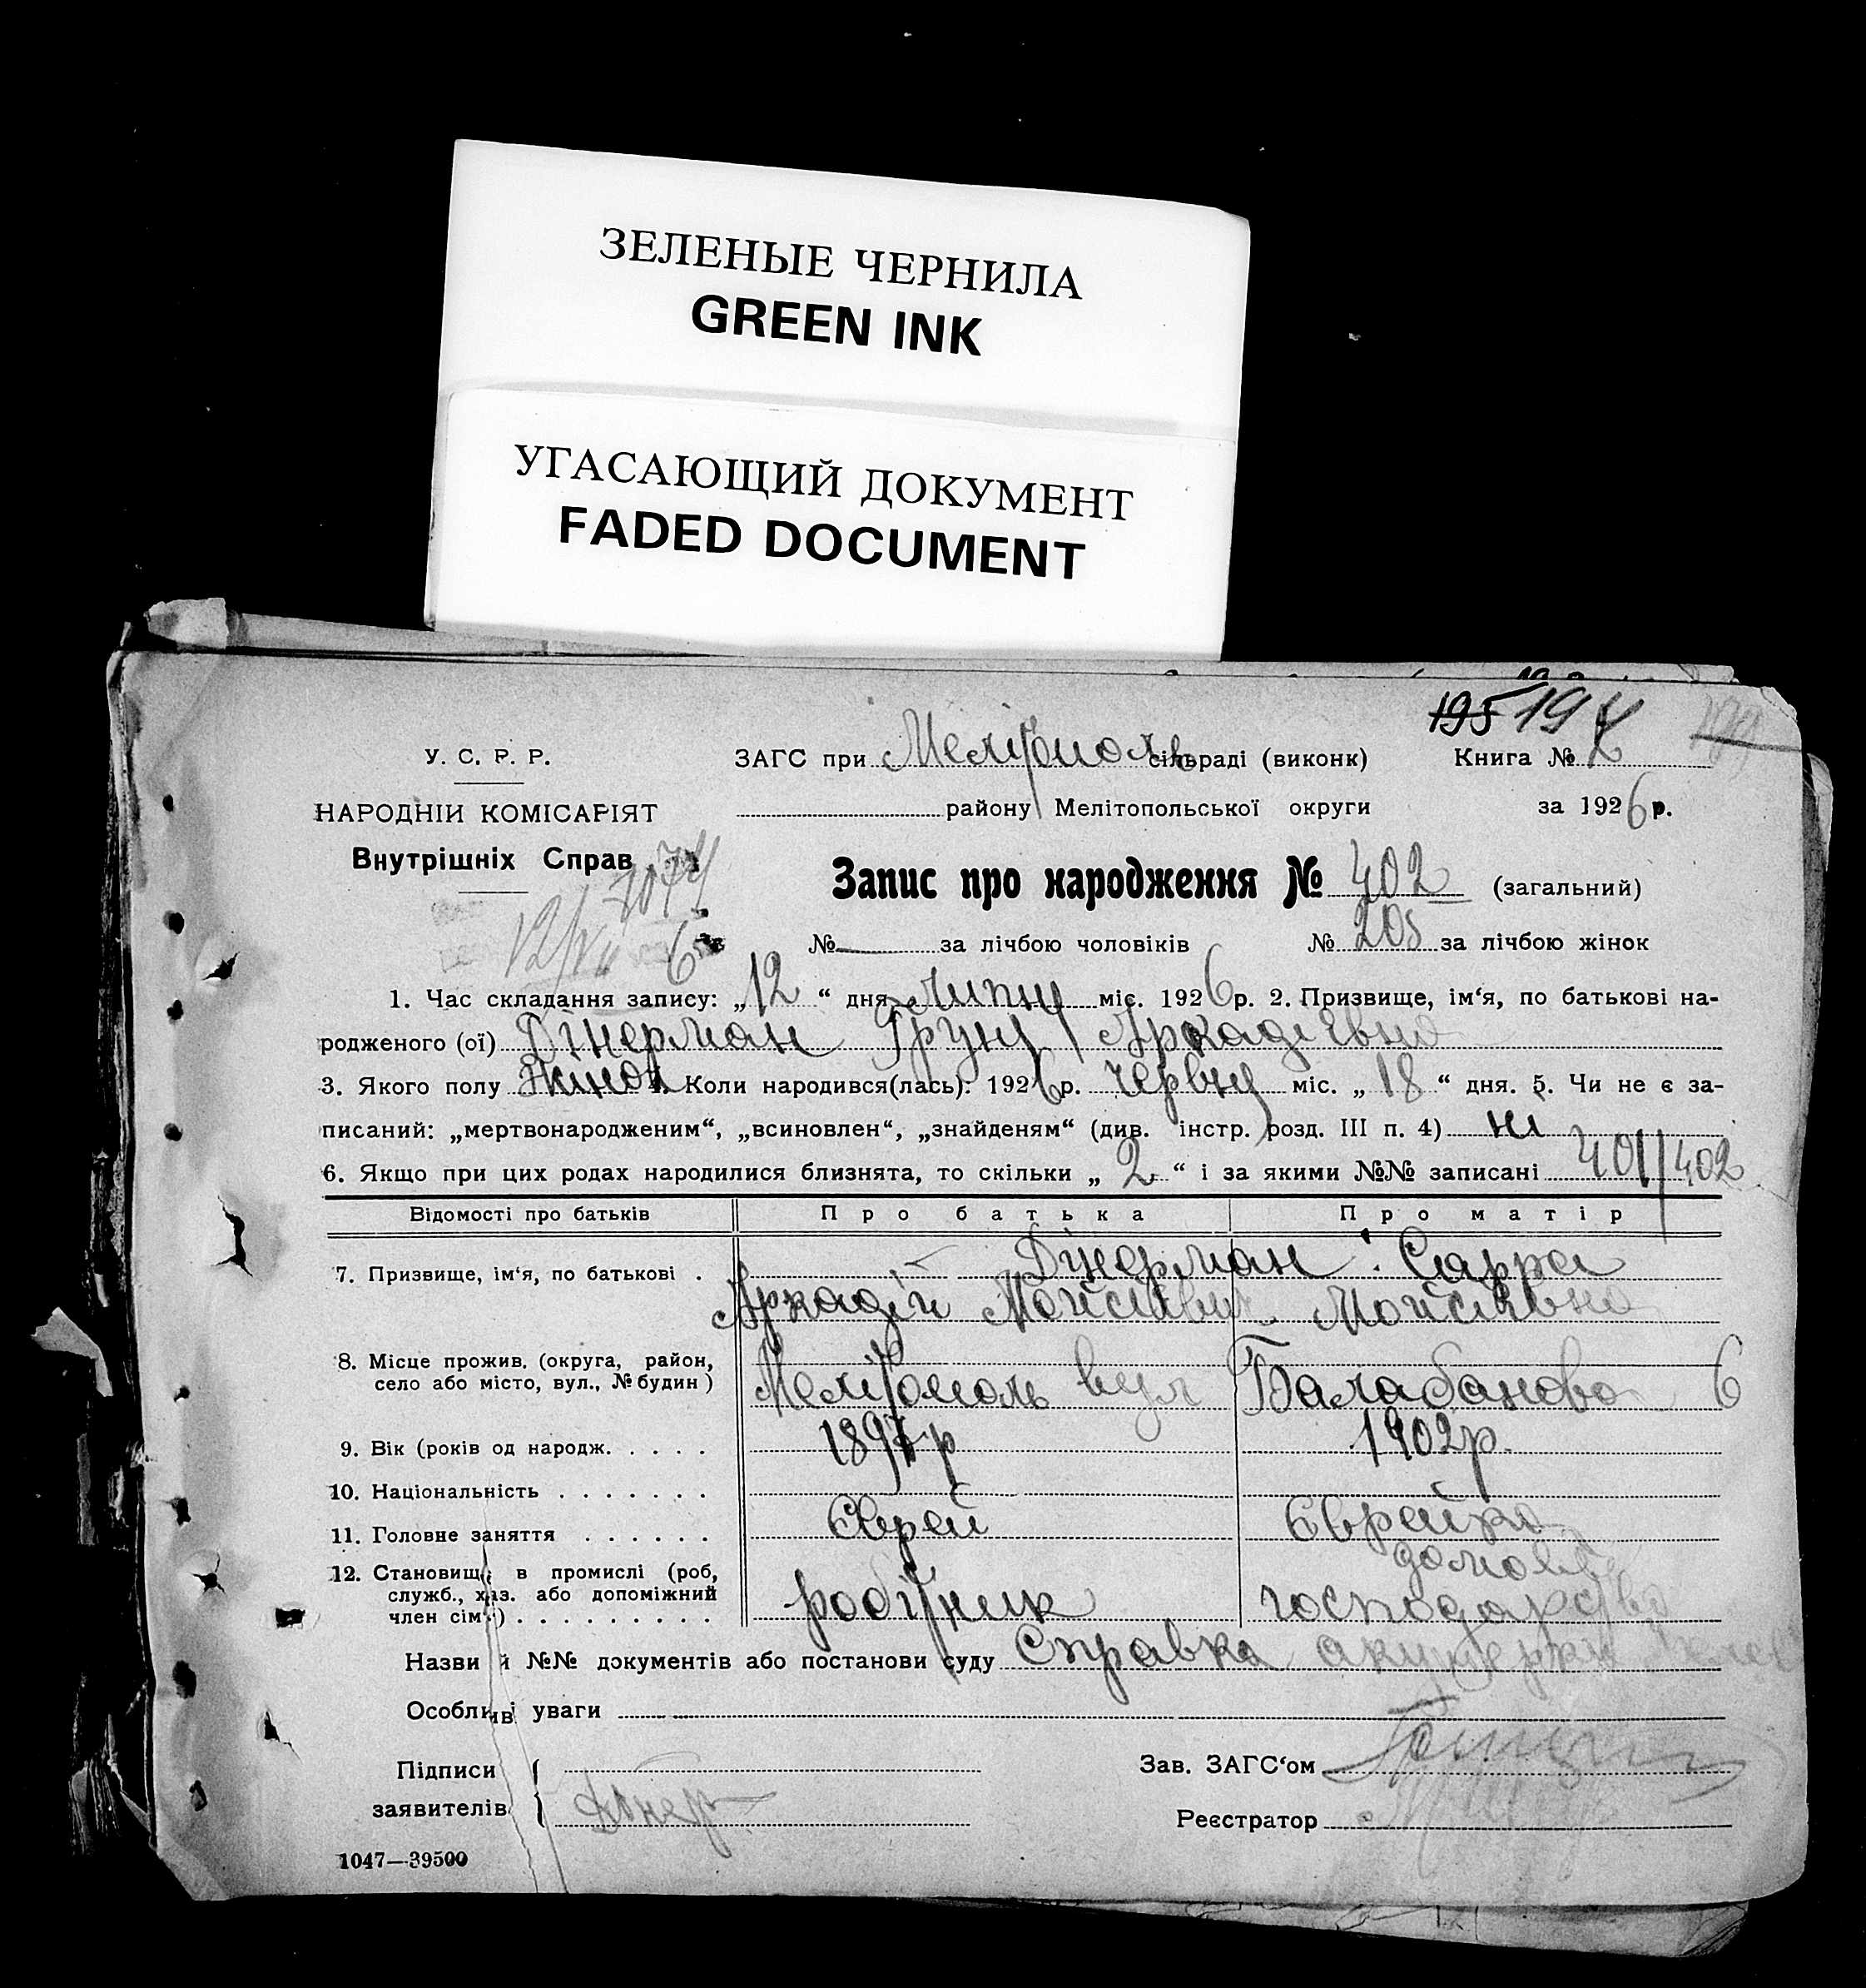 ЗЕЛЕНЫЕ ЧЕРНИЛА
GREEN INK
УГАСАЮЩИЙ ДОКУМЕНТ
FADED DOCUMENT
195 194
У. С. Р. Р.
ЗАГС при Мелітополь сільраді (виконк) Книга № 2
НАРОДНІЙ КОМІСАРІЯТ
району Мелітопольської округи за 1926 р.
Внутрішніх Справ
Запис про народження № 402 (загальний)
12/VII 6
№ — за лічбою чоловіків № 205 за лічбою жінок
1. Час складання запису: „12“ дня липня міс. 1926 р. 2. Призвище, ім‘я, по батькові на-
родженого (ої) Дінерман Аркадіевна
3. Якого полу Жіноч 4. Коли народився(лась): 1926 р. червня міс. „18“ дня. 5. Чи не є за-
писаний: „мертвонародженим“, „всиновлен“, „знайденям“ (див. інстр. розд. III п. 4) ні
6. Якщо при цих родах народилися близнята, то скільки „2“ і за якими №№ записані 401/402
Відомості про батьків Про батька Про матір
7. Призвище, ім‘я, по батькові . Дінерман Сарра
Аркадій Мойсієвич Мойсієвна
8. Місце прожив. (округа, район,
село або місто, вул., № будин) Мелітополь вул Балабанова 6
9. Вік (років од народж. . . . . 1897 р 1902 р.
10. Національність . . . . . . .
11. Головне заняття . . . . . . Єврей Єврейка
12. Становище в промислі (роб,
служб., хаз. або допоміжний
член сім‘ї) . . . . . . . . . робітник домове господарство
Назви й №№ документів або постанови суду Справка акушерки
Особливі уваги
Підписи
заявителів Дінер
Зав. ЗАГС‘ом
Реєстратор
1047—39500